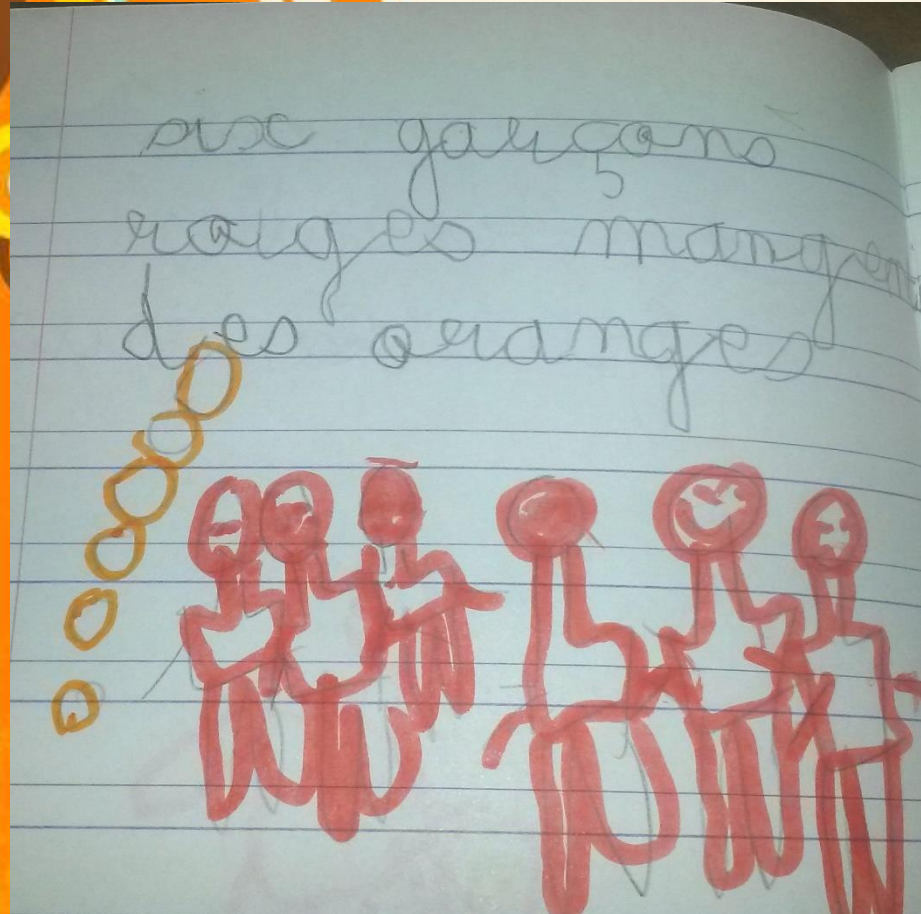 six garçons
roiges mangen
des oranges